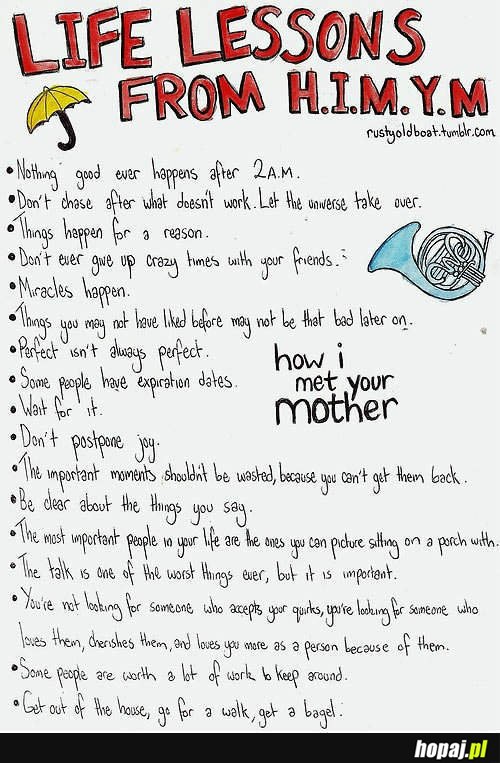 LIFE LESSONS
FROM H.I.M.Y.M
rustyoldboat.tumblr.com
• Nothing good ever happens after 2A.M.
• Don't chase after what doesn't work. Let the universe take over.
• Things happen for a reason.
• Don't ever give up crazy times with your friends.
• Miracles happen.
• Things you may not have liked before may not be that bad later on.
• Perfect isn't always perfect.
• Some people have expiration dates.
how i
met your
mother
• Wait for it.
• Don't postpone joy.
• The important moments shouldn't be wasted, because you can't get them back.
• Be clear about the things you say.
• The most important people in your life are the ones you can picture sitting on a porch with.
• The talk is one of the worst things ever, but it is important.
• You're not looking for someone who accepts your quirks, you're looking for someone who
loves them, cherishes them, and loves you more as a person because of them.
• Some people are worth a lot of work to keep around.
• Get out of the house, go for a walk, get a bagel.
hopaj.pl